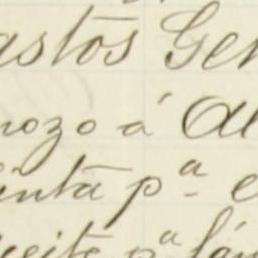 astõs Ger
nozo á Al
inta pª e
ceite pª lán